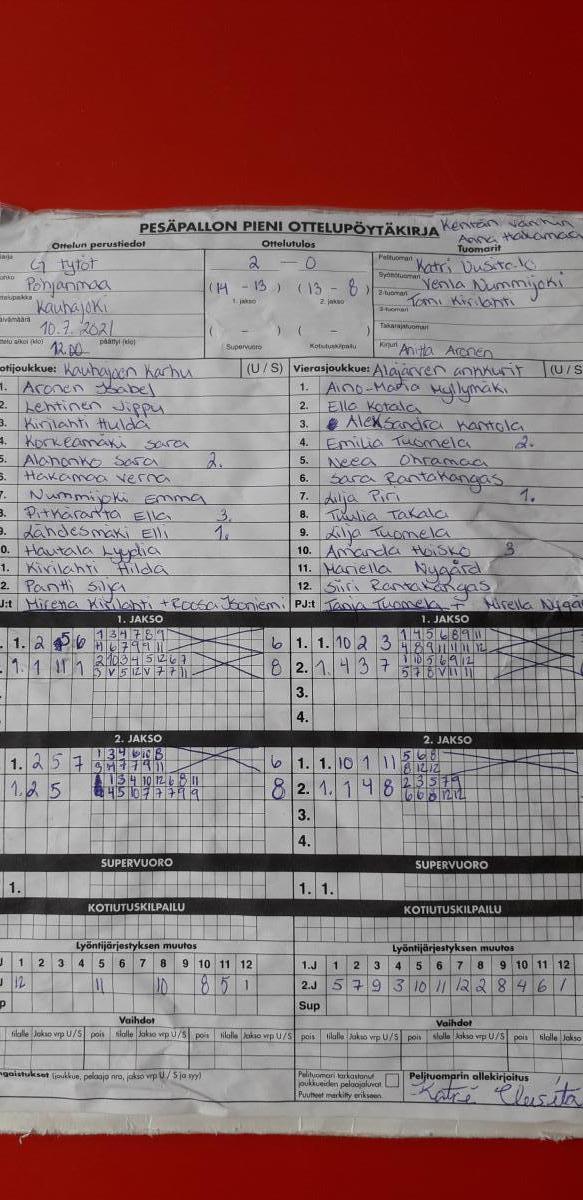 PESÄPALLON PIENI OTTELUPÖYTÄKIRJA
Kentän vanhin
Anna Hakamaa
Ottelun perustiedot Ottelutulos Tuomarit
G tytöt
Pohjanmaa
Kauhajoki
10.7.2021
12.00 päättyi (klo)
2 - 0
(14 - 13) (13 - 8)
1. jakso 2. jakso
( - ) ( - )
Supervuoro Kotiutuskilpailu
Pelituomari Katri Uusitalo
Syöttötuomari Venla Nummijoki
2-tuomari Tomi Kirilahti
3-tuomari
Takarajatuomari
Kirjuri Anitta Aronen
otijoukkue: Kauhajoen Karhu (U / S)
1. Aronen Isabel
2. Lehtinen Jippu
3. Kirilahti Hulda
4. Korkeamäki Sara
5. Alahonko Sara 2.
6. Hakamaa Verna
7. Nummijoki Emma
8. Pitkäranta Ella 3.
9. Lähdesmäki Elli 1.
0. Hautala Lyydia
1. Kirilahti Hilda
2. Pantti Silja
J:t Mirena Kirilahti + Roosa Isoniemi
Vierasjoukkue: Alajärven ankkurit (U / S
1. Aino-Maria Myllymäki
2. Ella Kotala
3. Aleksandra Kantola
4. Emilia Tuomela 2.
5. Neea Ohramaa
6. Sara Rantakangas
7. Lilja Piri 1.
8. Tuulia Takala
9. Lilja Tuomela
10. Amanda Hoisko 3
11. Mariella Nygård
12. Siiri Rantakangas
PJ:t Tanja Tuomela + Mirella Nygå
1. JAKSO 1. JAKSO
1. 2 5 6 1 3 4 7 8 9 6
4 6 7 9 9 11
1. 1 11 1 2 10 3 4 5 12 6 7 8
3 V 5 12 V 7 7 11
1. 1. 10 2 3 1 4 5 6 8 9 11
4 8 9 11 11 11 12
2. 1. 4 3 7 1 10 5 6 9 12
5 7 8 V 11 11
3.
4.
2. JAKSO 2. JAKSO
1. 2 5 7 1 3 4 6 10 8 6
3 4 7 7 9 11
1. 2 5 1 3 4 10 12 6 8 11 8
4 5 10 7 7 7 9 9
1. 1. 10 1 11 5 6 8
8 12 12
2. 1. 1 4 8 2 3 5 7 9
6 6 8 12 12
3.
4.
SUPERVUORO SUPERVUORO
1. 1. 1.
KOTIUTUSKILPAILU KOTIUTUSKILPAILU
Lyöntijärjestyksen muutos Lyöntijärjestyksen muutos
J 1 2 3 4 5 6 7 8 9 10 11 12
J 12 11 10 8 5 1
p
1.J 1 2 3 4 5 6 7 8 9 10 11 12
2.J 5 7 9 3 10 11 12 2 8 4 6 1
Sup
Vaihdot Vaihdot
tilalle Jakso vrp U/S pois tilalle Jakso vrp U/S pois tilalle Jakso vrp U/S
pois tilalle Jakso vrp U/S pois tilalle Jakso vrp U/S pois tilalle Jakso
ngaistukset (joukkue, pelaaja nro, jakso vrp U / S ja syy)
Pelituomari tarkastanut
joukkueiden pelaajaluvat
Puutteet merkitty erikseen.
Pelituomarin allekirjoitus
Katri Uusita